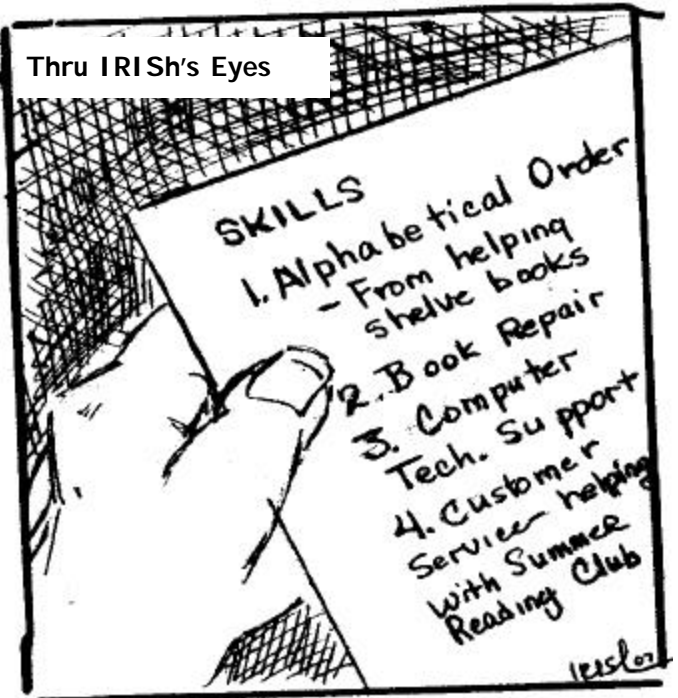 Thru IRISh's Eyes
SKILLS
1. Alphabetical Order
- From helping
shelve books
2. Book Repair
3. Computer
Tech. Support
4. Customer
Service helping
with Summer
Reading Club